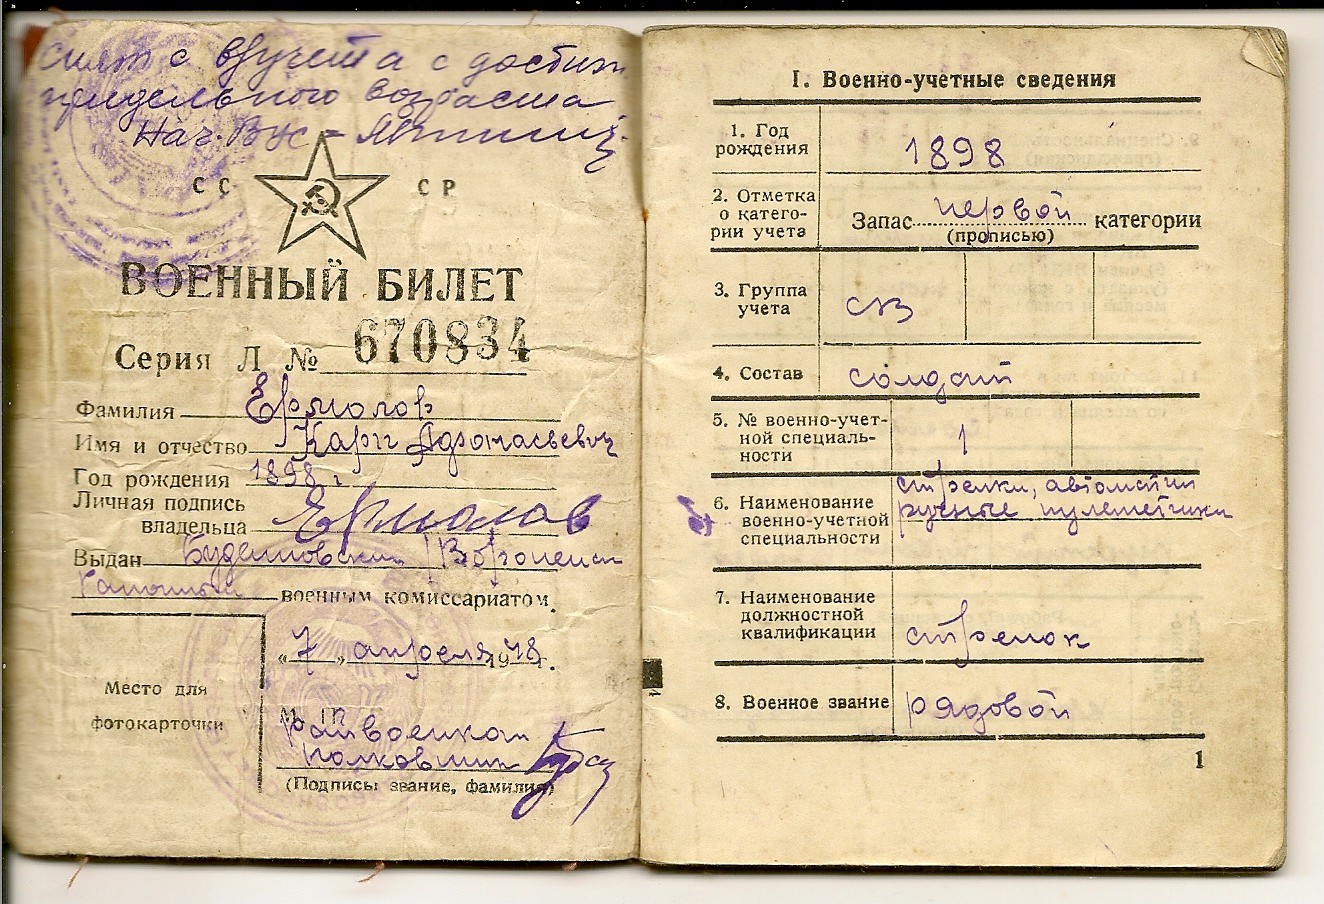 Снят с в/учета с достиж
предельного возраста
Нач. Вус -
СС СР
ВОЕННЫЙ БИЛЕТ
Серия Л № 670834
Фамилия Ермолов
Имя и отчество Карп Афонасьевич
Год рождения 1898 г
Личная подпись
владельца Ермолов
Выдан
военным комиссариатом.
„7" апреля 1948 г.
Место для
фотокарточки
М. П.
райвоенком
полковник
(Подписы звание, фамилия)
I. Военно-учетные сведения
1. Год
рождения
1898
2. Отметка
о катего-
рии учета
Запас первой категории
(прописью)
3. Группа
учета
св
4. Состав солдат
5. № военно-учет-
ной специаль-
ности
1
6. Наименование
военно-учетной
специальности
стрелки, автоматчи
ручные пулеметчики
7. Наименование
должностной
квалификации
стрелок
8. Военное звание рядовой
1